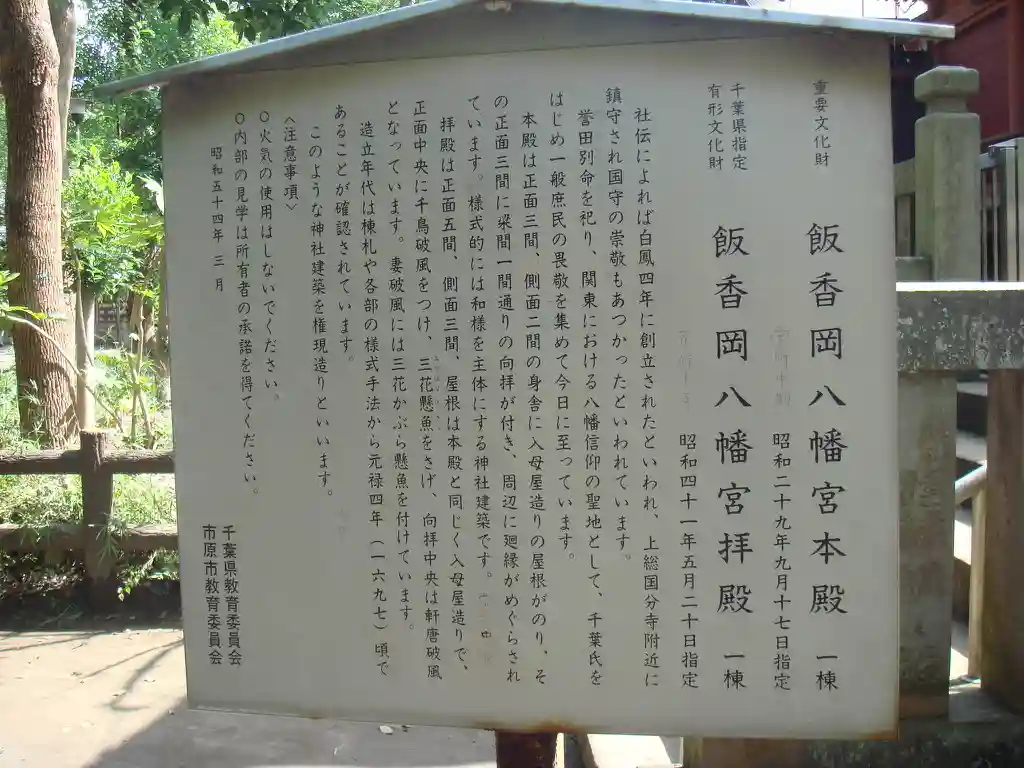 重要文化財　飯香岡八幡宮本殿　一棟
昭和二十九年九月十七日指定
千葉県指定
有形文化財　飯香岡八幡宮拝殿　一棟
昭和四十一年五月二十日指定
社伝によれば白鳳四年に創立されたといわれ、上総国分寺附近に
鎮守され国守の崇敬もあつかったといわれています。
誉田別命を祀り、関東における八幡信仰の聖地として、千葉氏を
はじめ一般庶民の畏敬を集めて今日に至っています。
本殿は正面三間、側面二間の身舎に入母屋造りの屋根がのり、そ
の正面三間に梁間一間通りの向拝が付き、周辺に廻縁がめぐらされ
ています。様式的には和様を主体にする神社建築です。
拝殿は正面五間、側面三間、屋根は本殿と同じく入母屋造りで、
正面中央に千鳥破風をつけ、三花懸魚をさげ、向拝中央は軒唐破風
となっています。妻破風には三花かぶら懸魚を付けています。
造立年代は棟札や各部の様式手法から元禄四年（一六九七）頃で
あることが確認されています。
このような神社建築を権現造りといいます。
〈注意事項〉
○火気の使用はしないでください。
○内部の見学は所有者の承諾を得てください。
昭和五十四年　三　月
千葉県教育委員会
市原市教育委員会